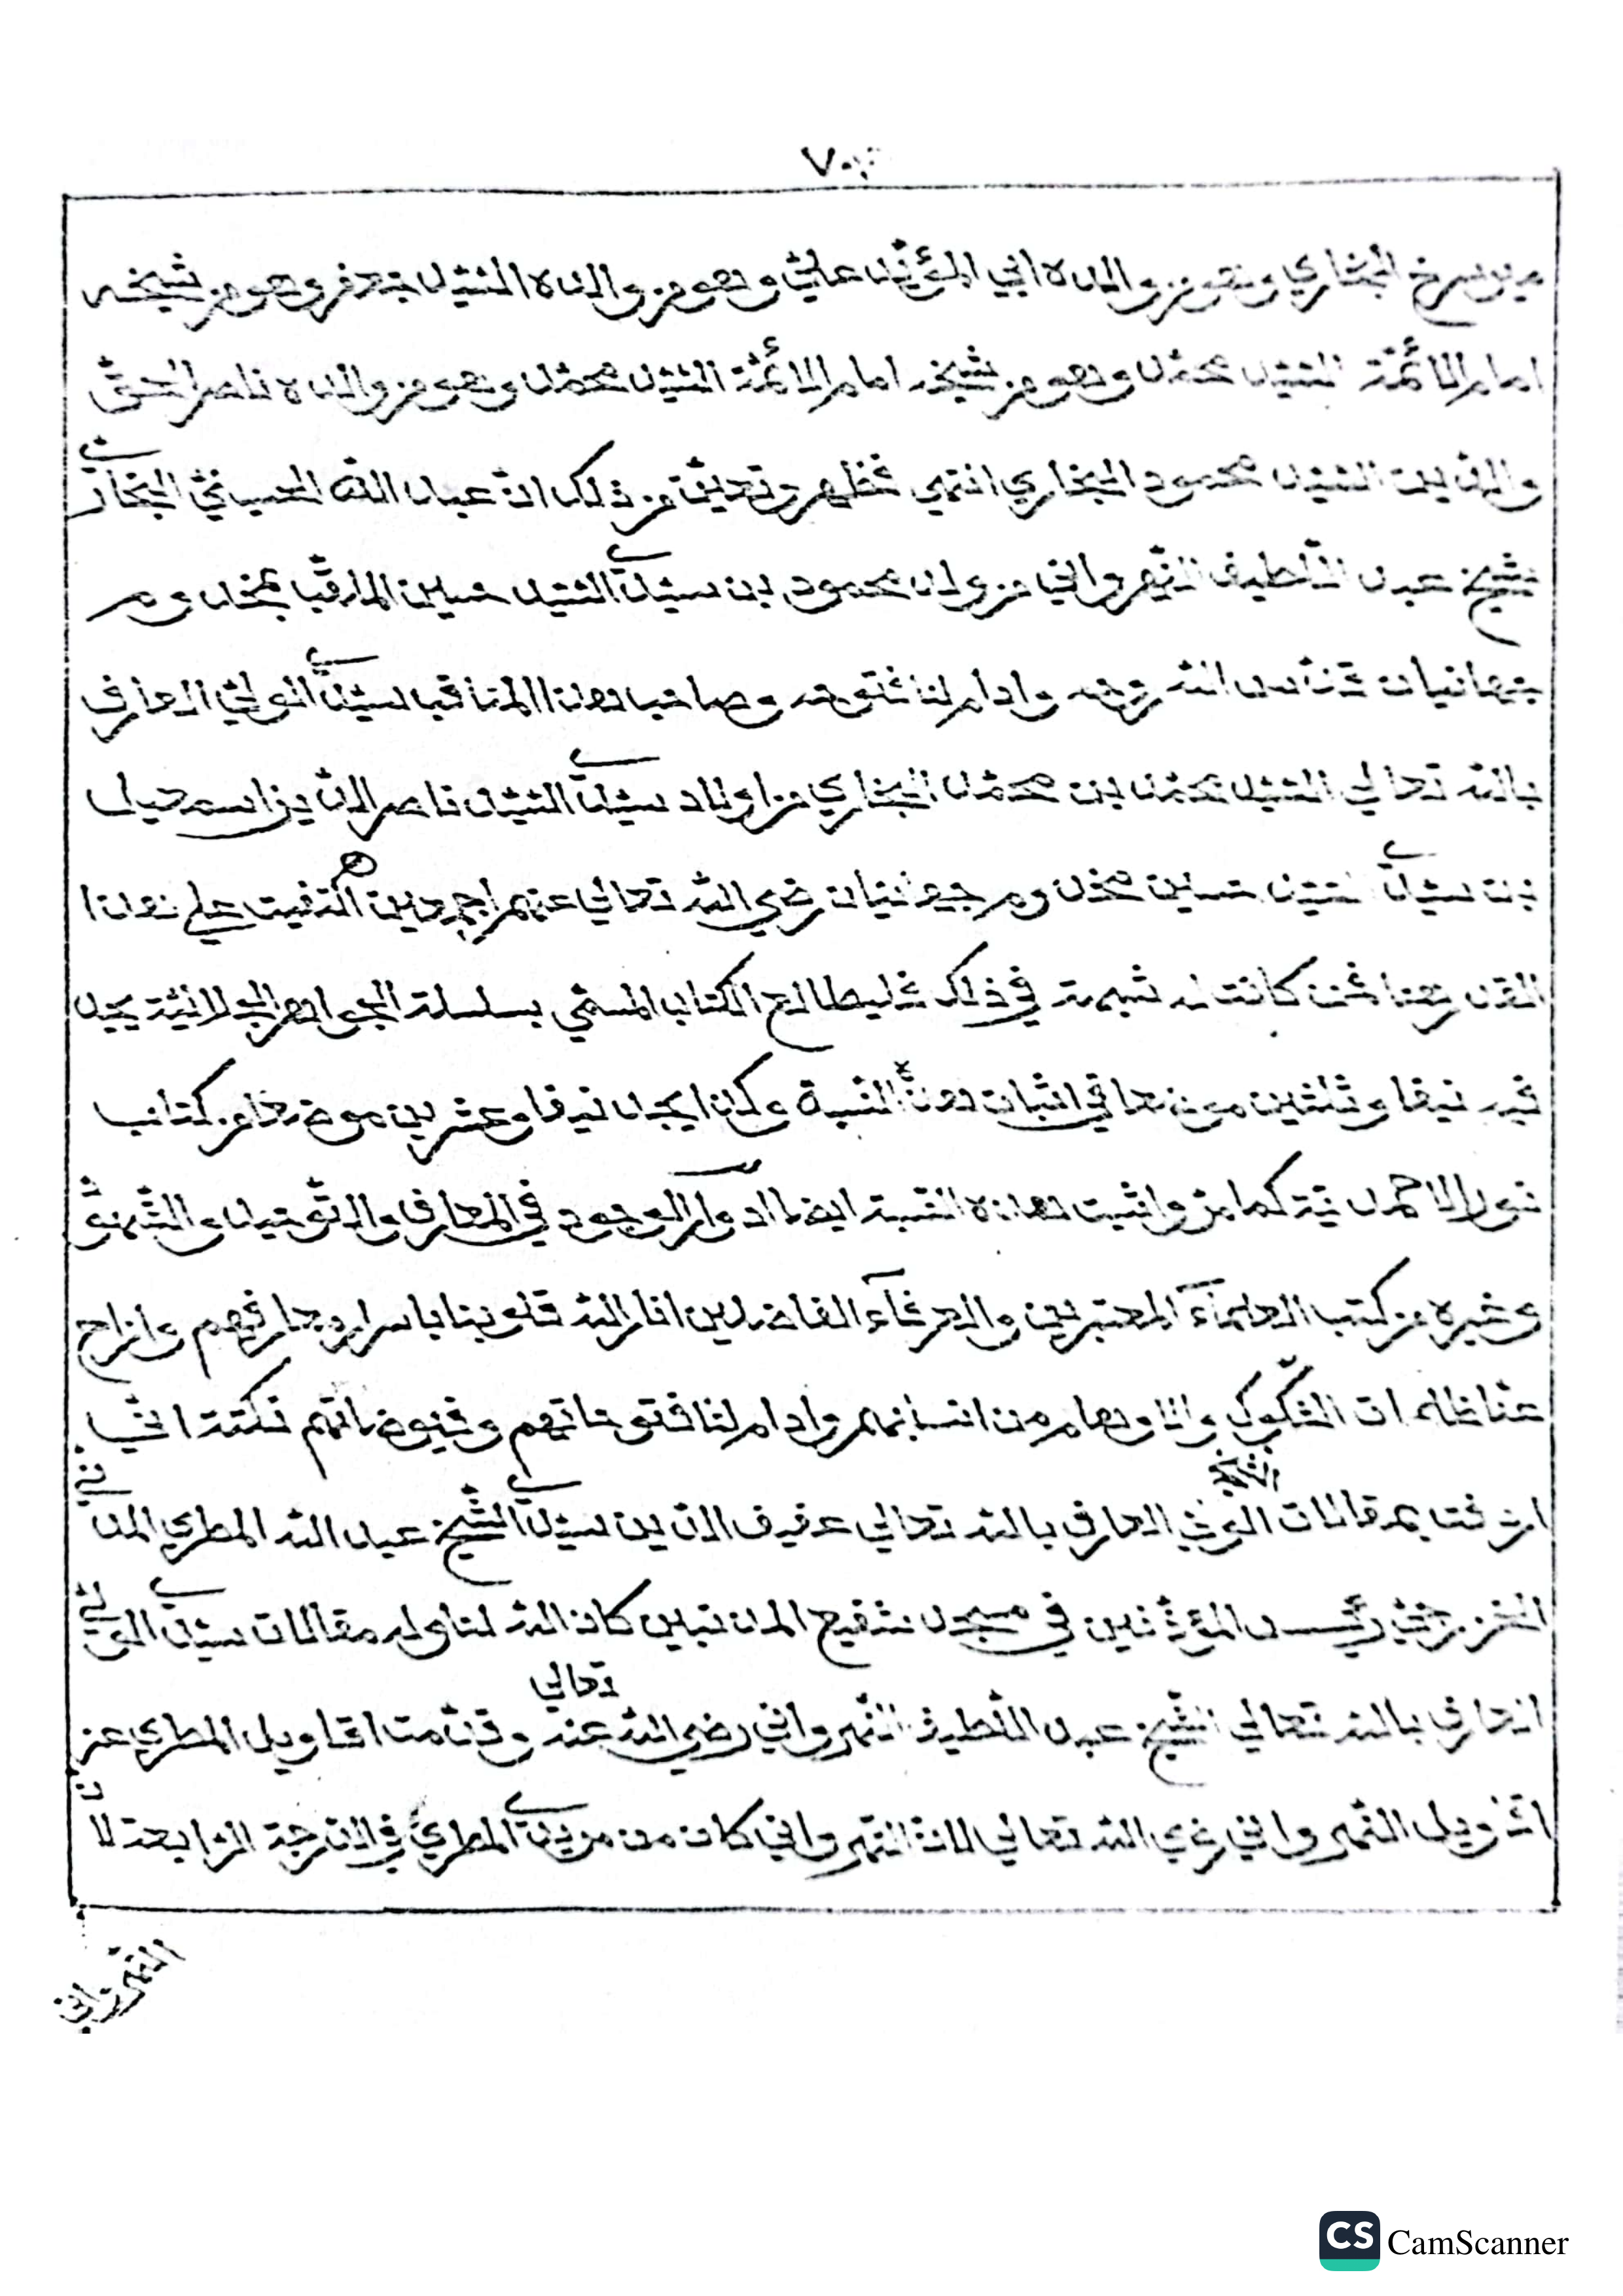 ٧٠
البخاري وهو من والده ابي المؤيّد عليّ وهو من والده السّيّد جعفر وهو من شيخه
امام الائمّة السّيّد محمّد وهو من شيخه امام الائمّة السّيّد محمّد وهو من والده ناصر الحقّ
والدّين السّيّد محمود البخاري انتهي فظهر وتعيّن من ذلك انّ عبد اللّه الحسينيّ البخاريّ
شيخ عبد اللّطيف النّهرواني من ولد محمود بن سيّدي السّيّد حسين الملقّب بمخدوم
جهانيان قدّس اللّه روحه وادام لنا فتوحه وصاحب هذا المناقب سيّدي الوليّ العارف
باللّه تعالي السّيّد محمّد بن محمّد البخاري من اولاد سيّدي السّيّد ناصر الدّين اسمعيل
بن سيّدي السّيّد حسين مخدوم جهانيان رضي اللّه تعالي عنهم اجمعين اكتفيت علي هذا
القدر هنا فمن كانت له شبهة في ذلك فليطالع الكتاب المسمّي بسلسلة الجواهر الجلاليّة يجد
فيه نيفا وثلثين موضعا في اثبات هذه النّسبة وكذا يجد نيفا وعشرين موضعا من كتاب
نور الاحمديّة كما مرّ واثبت هذه النّسبة ايضا ادوار الوجود في المعارف والتّوحيد والشّهود
وغيره من كتب العلمآء المعتبرين والعرفآء الفاضلين انار اللّه قلوبنا باسرار معارفهم وازاح
عنّا ظلمات الشّكوك والاوهام من انسابهم وادام لنا فتوحاتهم وفيوضاتهم نكتة اخي
اردفت بمقالات الشّيخ العارف باللّه تعالي عفيف الدّين سيّدي الشّيخ عبد اللّه المطري المدنيّ
الخزرجيّ رئيس المؤذّنين في مسجد شفيع المذنبين كان اللّه لنا وله مقالات سيّدي الوليّ
العارف باللّه تعالي الشّيخ عبد اللّطيف النّهرواني رضي اللّه تعالي عنه وقدّمت اقاويل المطري عن
اقاويل النّهرواني رضي اللّه تعالي لانّ النّهرواني كان من مريدي المطريّ في الدّرجة الرّابعة لانّ
النّهرواني
CS CamScanner